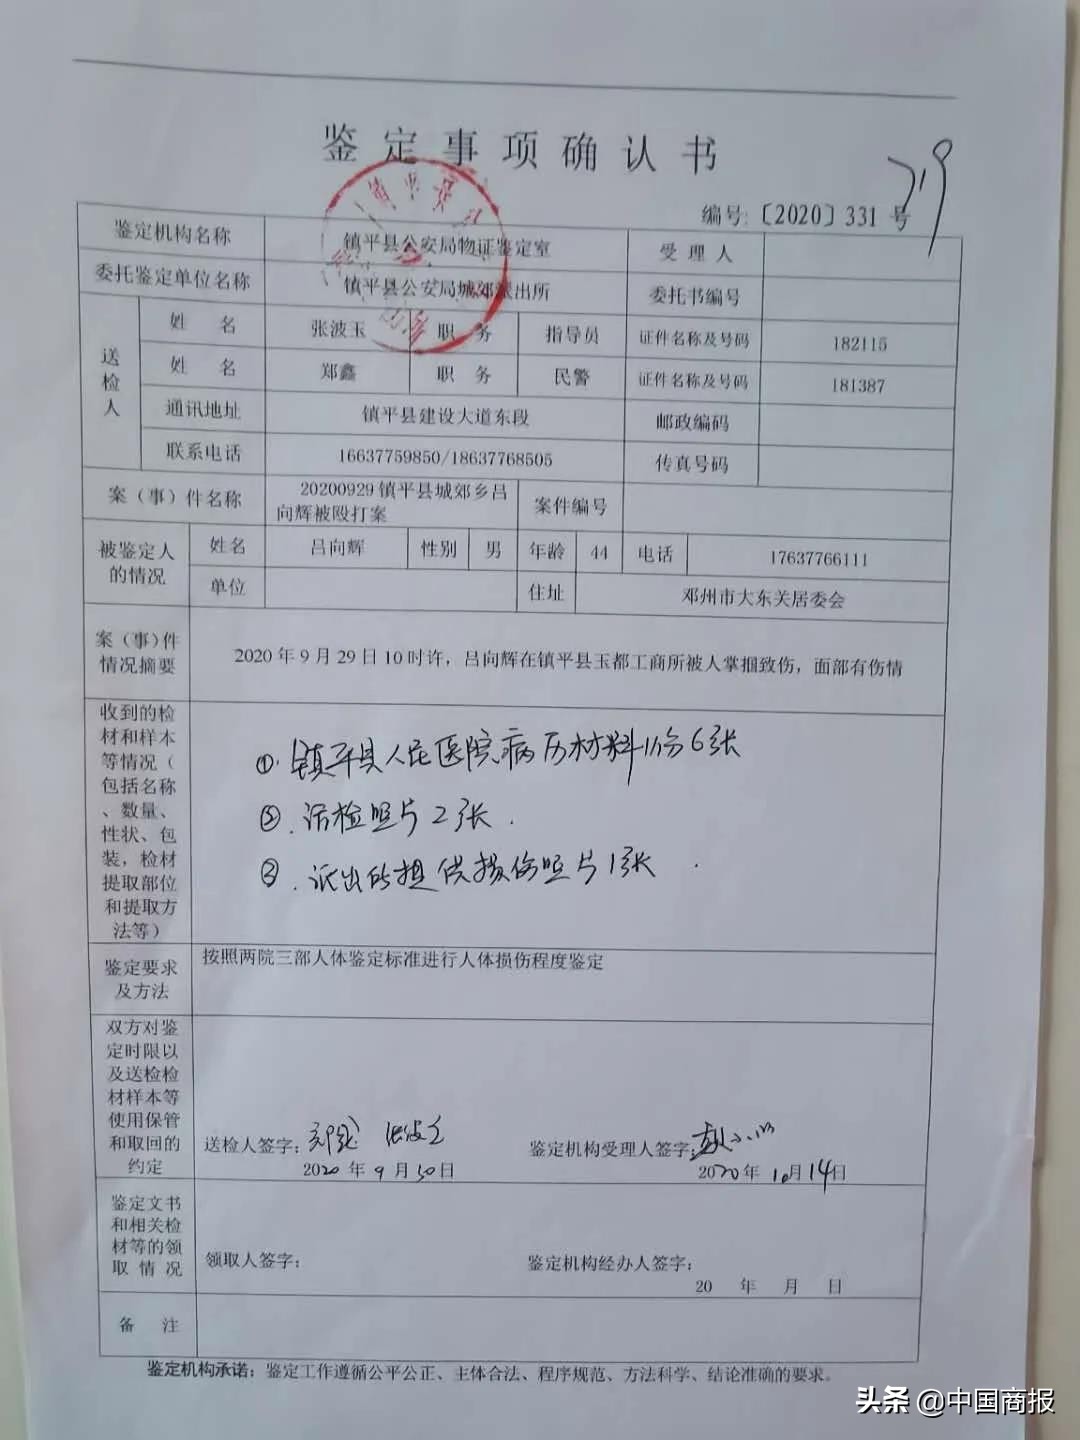 鉴定事项确认书
编号:〔2020〕331号
鉴定机构名称 镇平县公安局物证鉴定室 受理人
委托鉴定单位名称 镇平县公安局城郊派出所 委托书编号
送检人
姓名 张波玉 职务 指导员 证件名称及号码 182115
姓名 郑鑫 职务 民警 证件名称及号码 181387
通讯地址 镇平县建设大道东段 邮政编码
联系电话 16637759850/18637768505 传真号码
案（事）件名称 20200929镇平县城郊乡吕
向辉被殴打案 案件编号
被鉴定人
的情况
姓名 吕向辉 性别 男 年龄 44 电话 17637766111
单位 住址 邓州市大东关居委会
案（事）件
情况摘要
2020年9月29日10时许，吕向辉在镇平县玉都工商所被人掌掴致伤，面部有伤情
收到的检
材和样本
等情况（
包括名称
、数量、
性状、包
装，检材
提取部位
和提取方
法等）
①.镇平县人民医院病历材料1份6张
②.活检照片2张.
③.派出所提供损伤照片1张.
鉴定要求
及方法
按照两院三部人体鉴定标准进行人体损伤程度鉴定
双方对鉴
定时限以
及送检检
材样本等
使用保管
和取回的
约定
送检人签字：郑鑫 张波玉
2020年9月30日
鉴定机构受理人签字：
2020年10月14日
鉴定文书
和相关检
材等的领
取情况
领取人签字：
鉴定机构经办人签字：
20 年 月 日
备注
鉴定机构承诺：鉴定工作遵循公平公正、主体合法、程序规范、方法科学、结论准确的要求。
头条 @中国商报